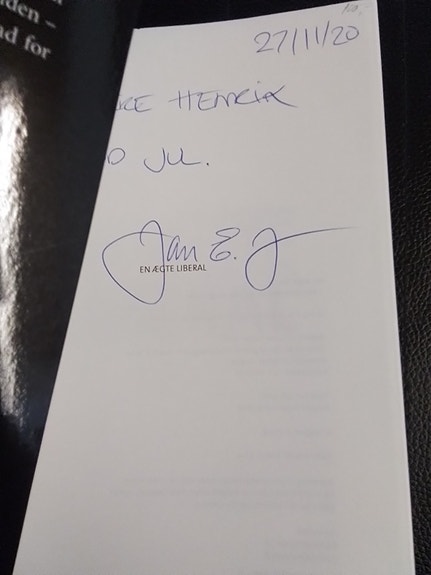 den –
d for
27/11/20
KE HENRIK
JUL.
Jan E. J
EN ÆGTE LIBERAL